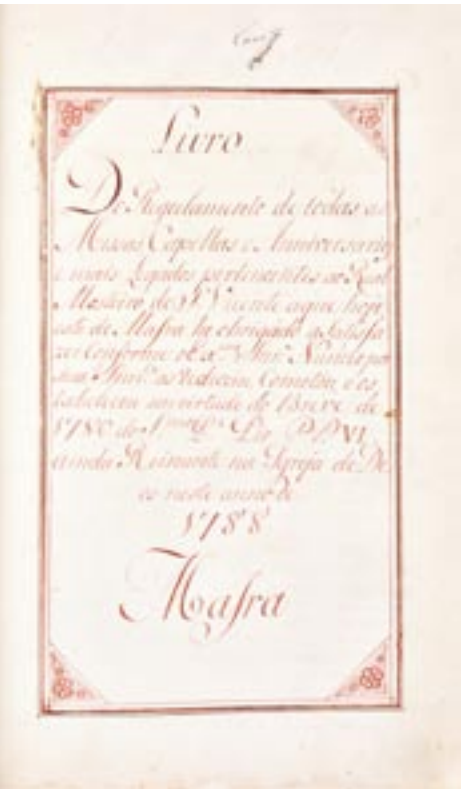 Livro
De Regulamento de todas as
Missas Capellas e Anniversarios
e mais Legados pertencentes ao Real
Mosteiro de S. Vicente aque hoje
este de Mafra he obrigado a satisfa
zer conforme o Nuncio por
sua as reduzem Comotão e es
tabelecem em virtude do Breve de
1780 do P. Pio P. P. VI
ainda Reinante na Igreja de De
os neste anno de
1788
Mafra